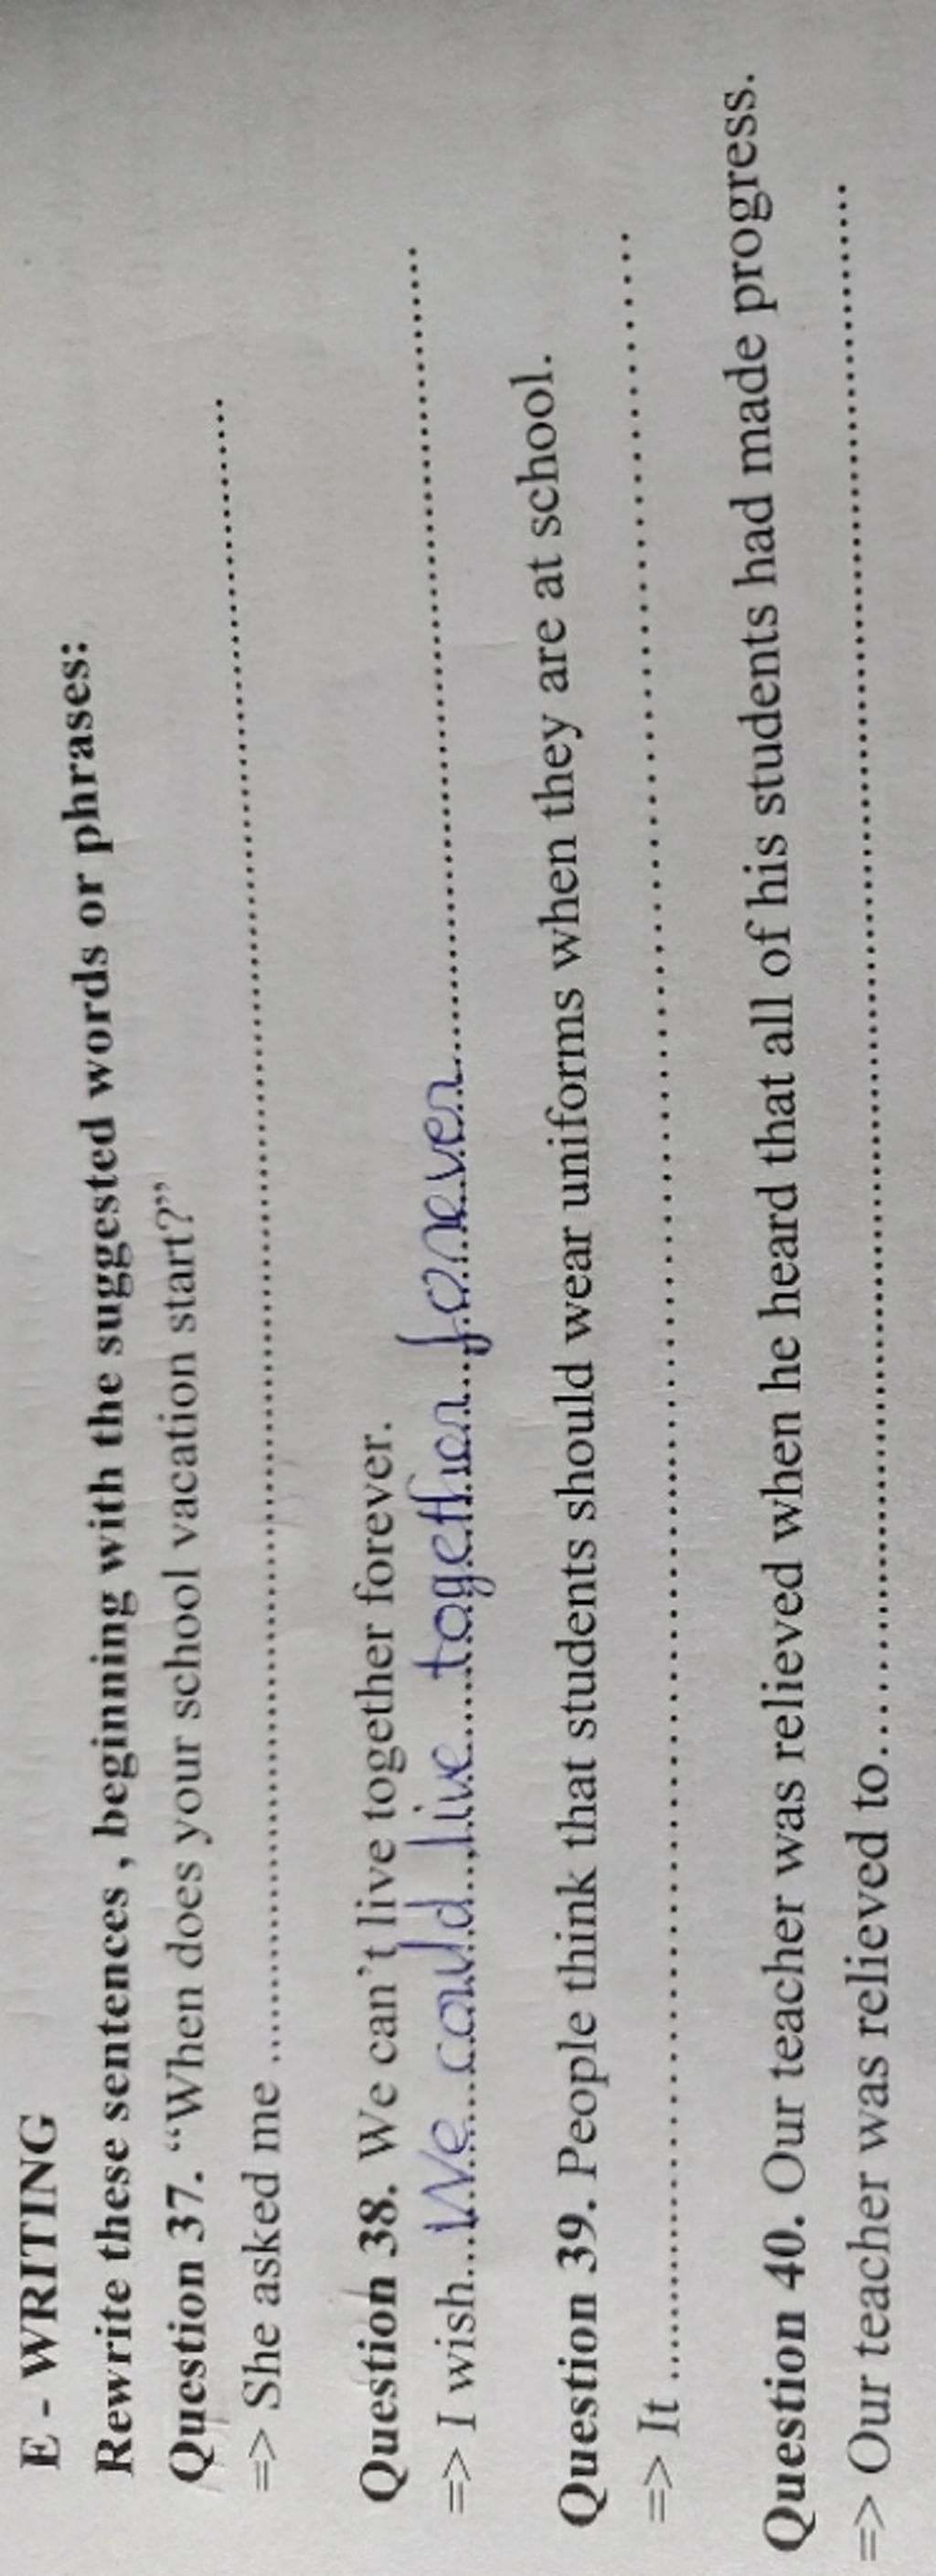 E - WRITING
Rewrite these sentences , beginning with the suggested words or phrases:
Question 37. “When does your school vacation start?”
=> She asked me ................................................................
Question 38. We can’t live together forever.
=> I wish...We...could...live...together...forever................................
Question 39. People think that students should wear uniforms when they are at school.
=> It ................................................................
Question 40. Our teacher was relieved when he heard that all of his students had made progress.
=> Our teacher was relieved to................................................................